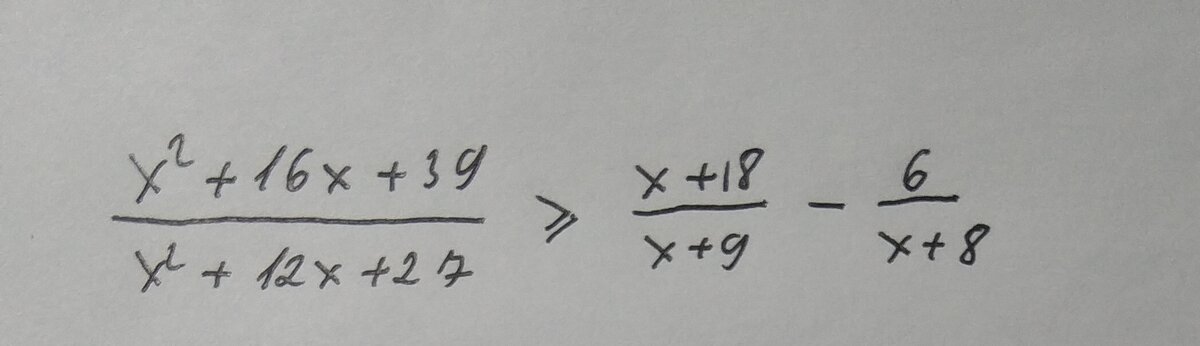 (x²+16x+39)/(x²+12x+27) ⩾ (x+18)/(x+9) - 6/(x+8)